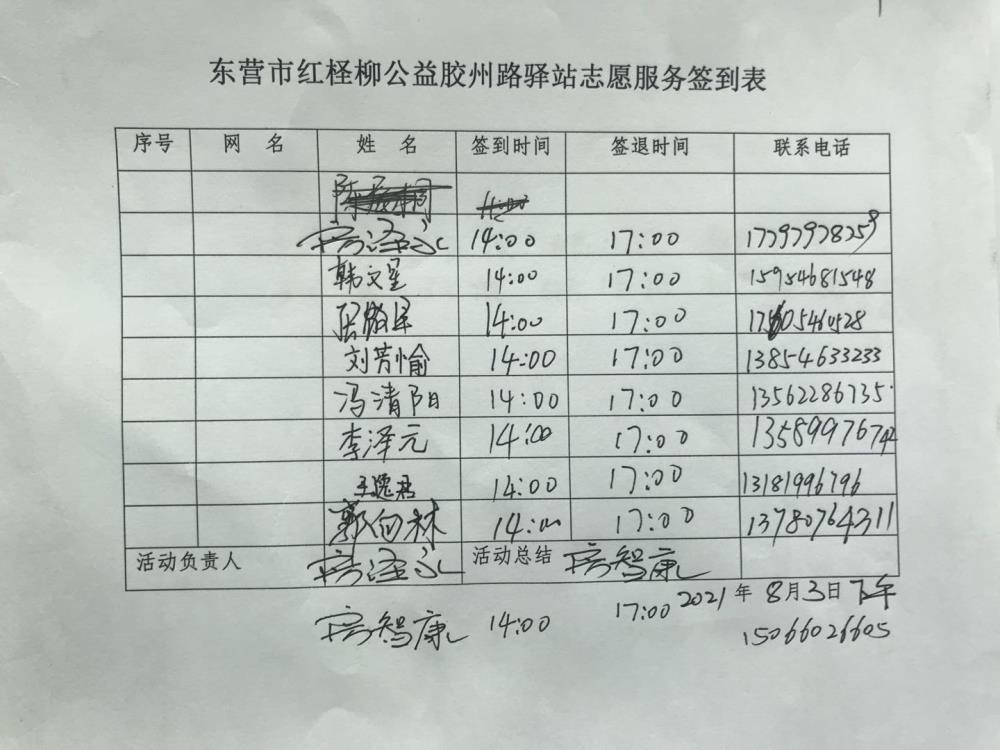 东营市红柽柳公益胶州路驿站志愿服务签到表
序号 网 名 姓 名 签到时间 签退时间 联系电话
房泽永 14:00 17:00 17797978259
韩文星 14:00 17:00 15954681548
14:00 17:00
刘芳愉 14:00 17:00 13854633233
冯清阳 14:00 17:00 13562286735
李泽元 14:00 17:00 13589976742
王逸君 14:00 17:00 13181996796
郭向林 14:00 17:00 13780764311
活动负责人 房泽永 活动总结 房智康
2021年8月3日下午
房智康 14:00 17:00 15066026605